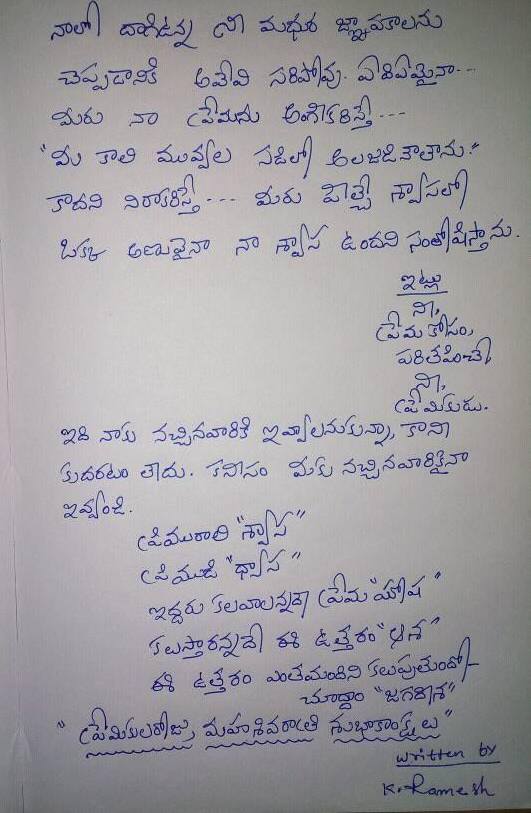 నాలో దాగిఉన్న నీ మధుర జ్ఞాపకాలను
చెప్పడానికి అవేవి సరిపోవు. ఏదిఏమైనా...
మీరు నా ప్రేమను అంగీకరిస్తే...
"మీ కాలి మువ్వల సడిలో అలజడినౌతాను."
కాదని నిరాకరిస్తే... మీరు పీల్చే శ్వాసలో
ఒక్క అణువైనా నా శ్వాస ఉందని సంతోషిస్తాను.
ఇట్లు
నీ,
ప్రేమకోసం,
పరితపించే
నీ,
ప్రేమికుడు.
ఇది నాకు నచ్చినవారికి ఇవ్వాలనుకున్నా, కాని
కుదరటం లేదు. కనీసం మీకు నచ్చినవారికైనా
ఇవ్వండి.
ప్రియురాలి "శ్వాస"
ప్రియుడి "ధ్యాస"
ఇద్దరు కలవాలన్నదే ప్రేమ "ఘోష"
కలుస్తారన్నదే ఈ ఉత్తరం "ఆశ"
ఈ ఉత్తరం ఎంతమందిని కలుపుతుందో
చూద్దాం "జగదీశ"
"ప్రేమికులరోజు, మహాశివరాత్రి శుభాకాంక్షలు"
written by
K. Ramesh